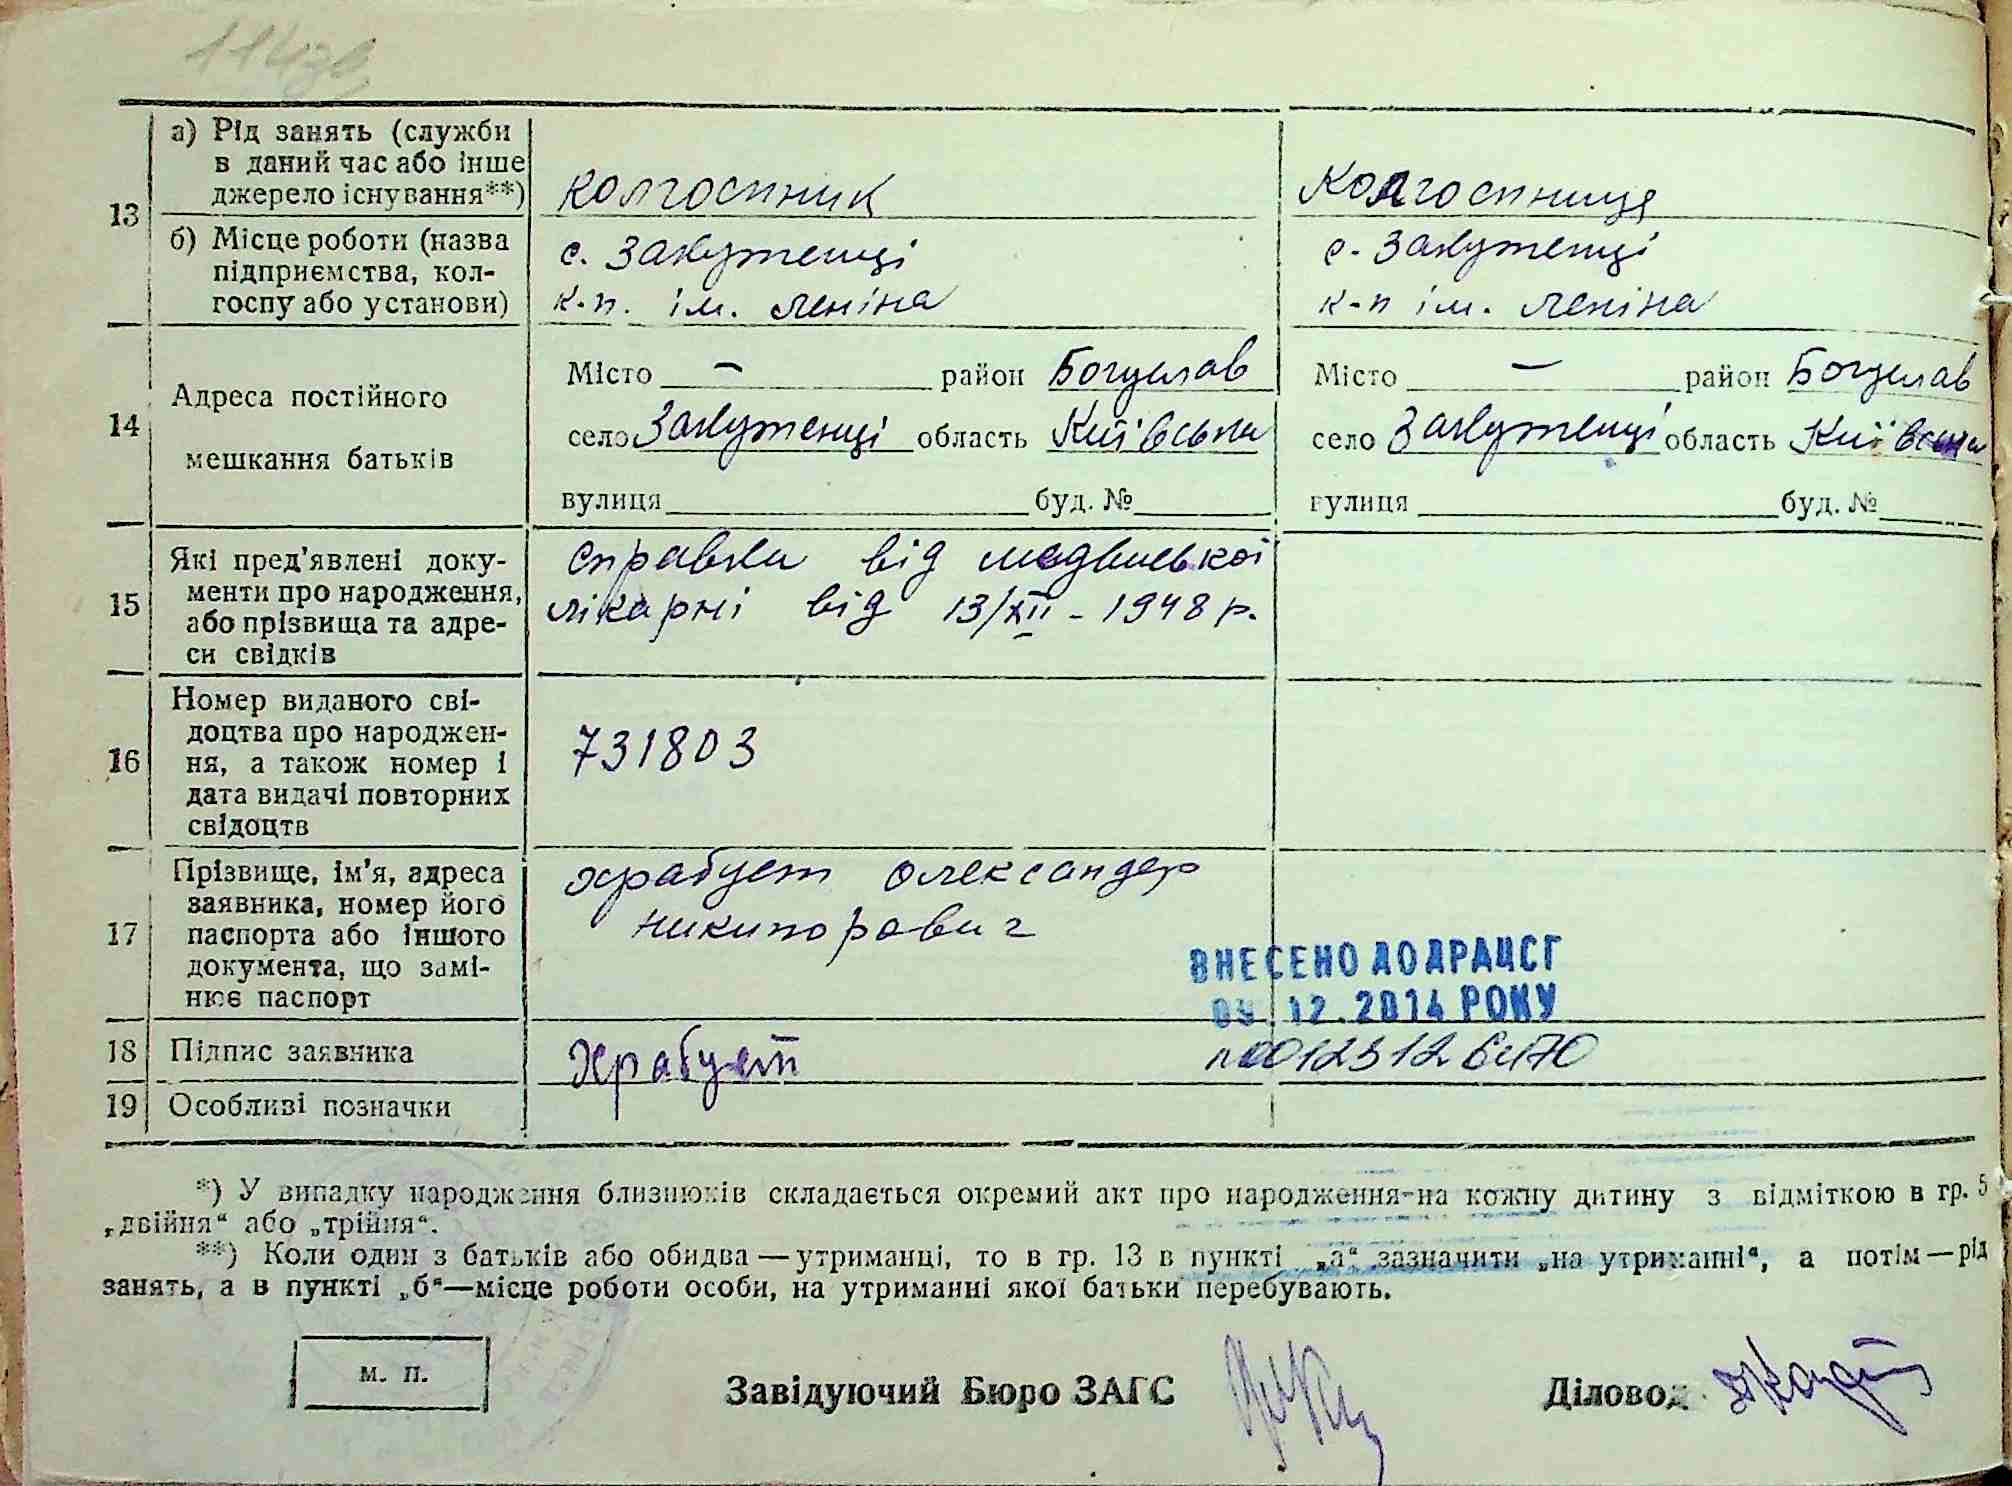 а) Рід занять (служби
в даний час або інше
джерело існування**)
колгоспник
Колгоспниця
13
б) Місце роботи (назва
підприємства, кол-
госпу або установи)
с. Закутенці
к-п. ім. Леніна
с. Закутенці
к-п ім. Леніна
14
Адреса постійного
мешкання батьків
Місто — район Богуслав
село Закутенці область Київська
вулиця буд. №
Місто — район Богуслав
село Закутенці область Київська
вулиця буд. №
15
Які пред'явлені доку-
менти про народження,
або прізвища та адре-
си свідків
справка від медвинської
лікарні від 13/XII - 1948 р.
16
Номер виданого сві-
доцтва про народжен-
ня, а також номер і
дата видачі повторних
свідоцтв
731803
17
Прізвище, ім'я, адреса
заявника, номер його
паспорта або іншого
документа, що замі-
нює паспорт
Храбуст Олександер
Никипорович
ВНЕСЕНО ДО ДРАЦСГ
09.12.2014 РОКУ
18 Підпис заявника
Храбуст
19 Особливі позначки
*) У випадку народження близнюків складається окремий акт про народження на кожну дитину з відміткою в гр. 5
„двійня“ або „трійня“.
**) Коли один з батьків або обидва — утриманці, то в гр. 13 в пункті „а“ зазначити „на утриманні“, а потім — рід
занять, а в пункті „б“—місце роботи особи, на утриманні якої батьки перебувають.
м. п.
Завідуючий Бюро ЗАГС
Діловод